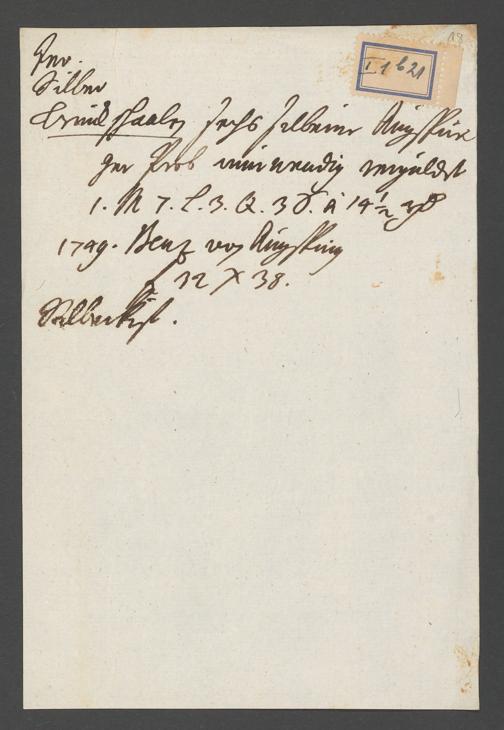 18
I 1 b 21
Silber
Trinkschaalen sechs silberne Augspur
ger Prob inwendig vergüldet
1. M 7. L. 3. Q. 3 ₰. à 14 1/2
1749. Benz von Augspurg
f 12 X 38.
Silberkist.